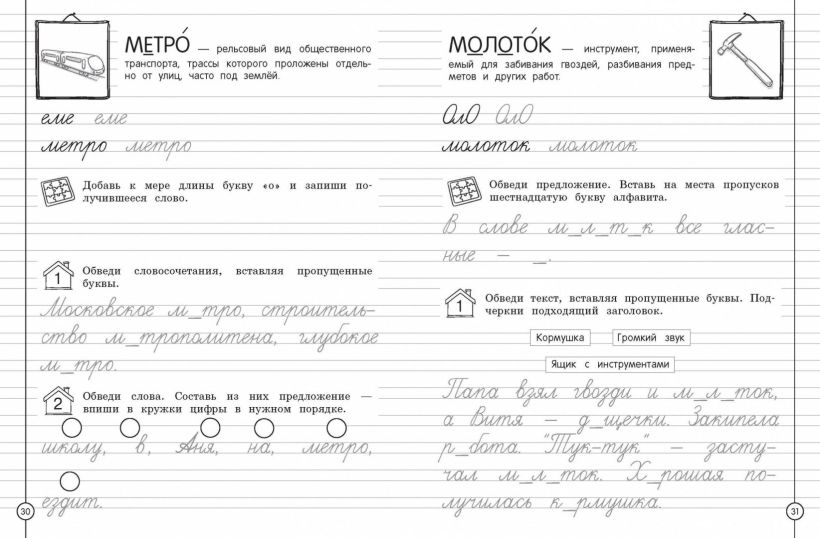 МЕТРО́ — рельсовый вид общественного
транспорта, трассы которого проложены отдель-
но от улиц, часто под землёй.
еме еме
метро метро
Добавь к мере длины букву «о» и запиши по-
лучившееся слово.
1 Обведи словосочетания, вставляя пропущенные
буквы.
Московское м_тро, строитель-
ство м_трополитена, глубокое
м_тро.
2 Обведи слова. Составь из них предложение —
впиши в кружки цифры в нужном порядке.
школу, в, Аня, на, метро,
ездит.
30
МОЛОТО́К — инструмент, применя-
емый для забивания гвоздей, разбивания пред-
метов и других работ.
ОлО ОлО
молоток молоток
Обведи предложение. Вставь на места пропусков
шестнадцатую букву алфавита.
В слове м_л_т_к все глас-
ные — _.
1 Обведи текст, вставляя пропущенные буквы. Под-
черкни подходящий заголовок.
Кормушка Громкий звук
Ящик с инструментами
Папа взял гвозди и м_л_ток,
а Витя — д_щечки. Закипела
р_бота. "Тук-тук" — засту-
чал м_л_ток. Х_рошая по-
лучилась к_рмушка.
31